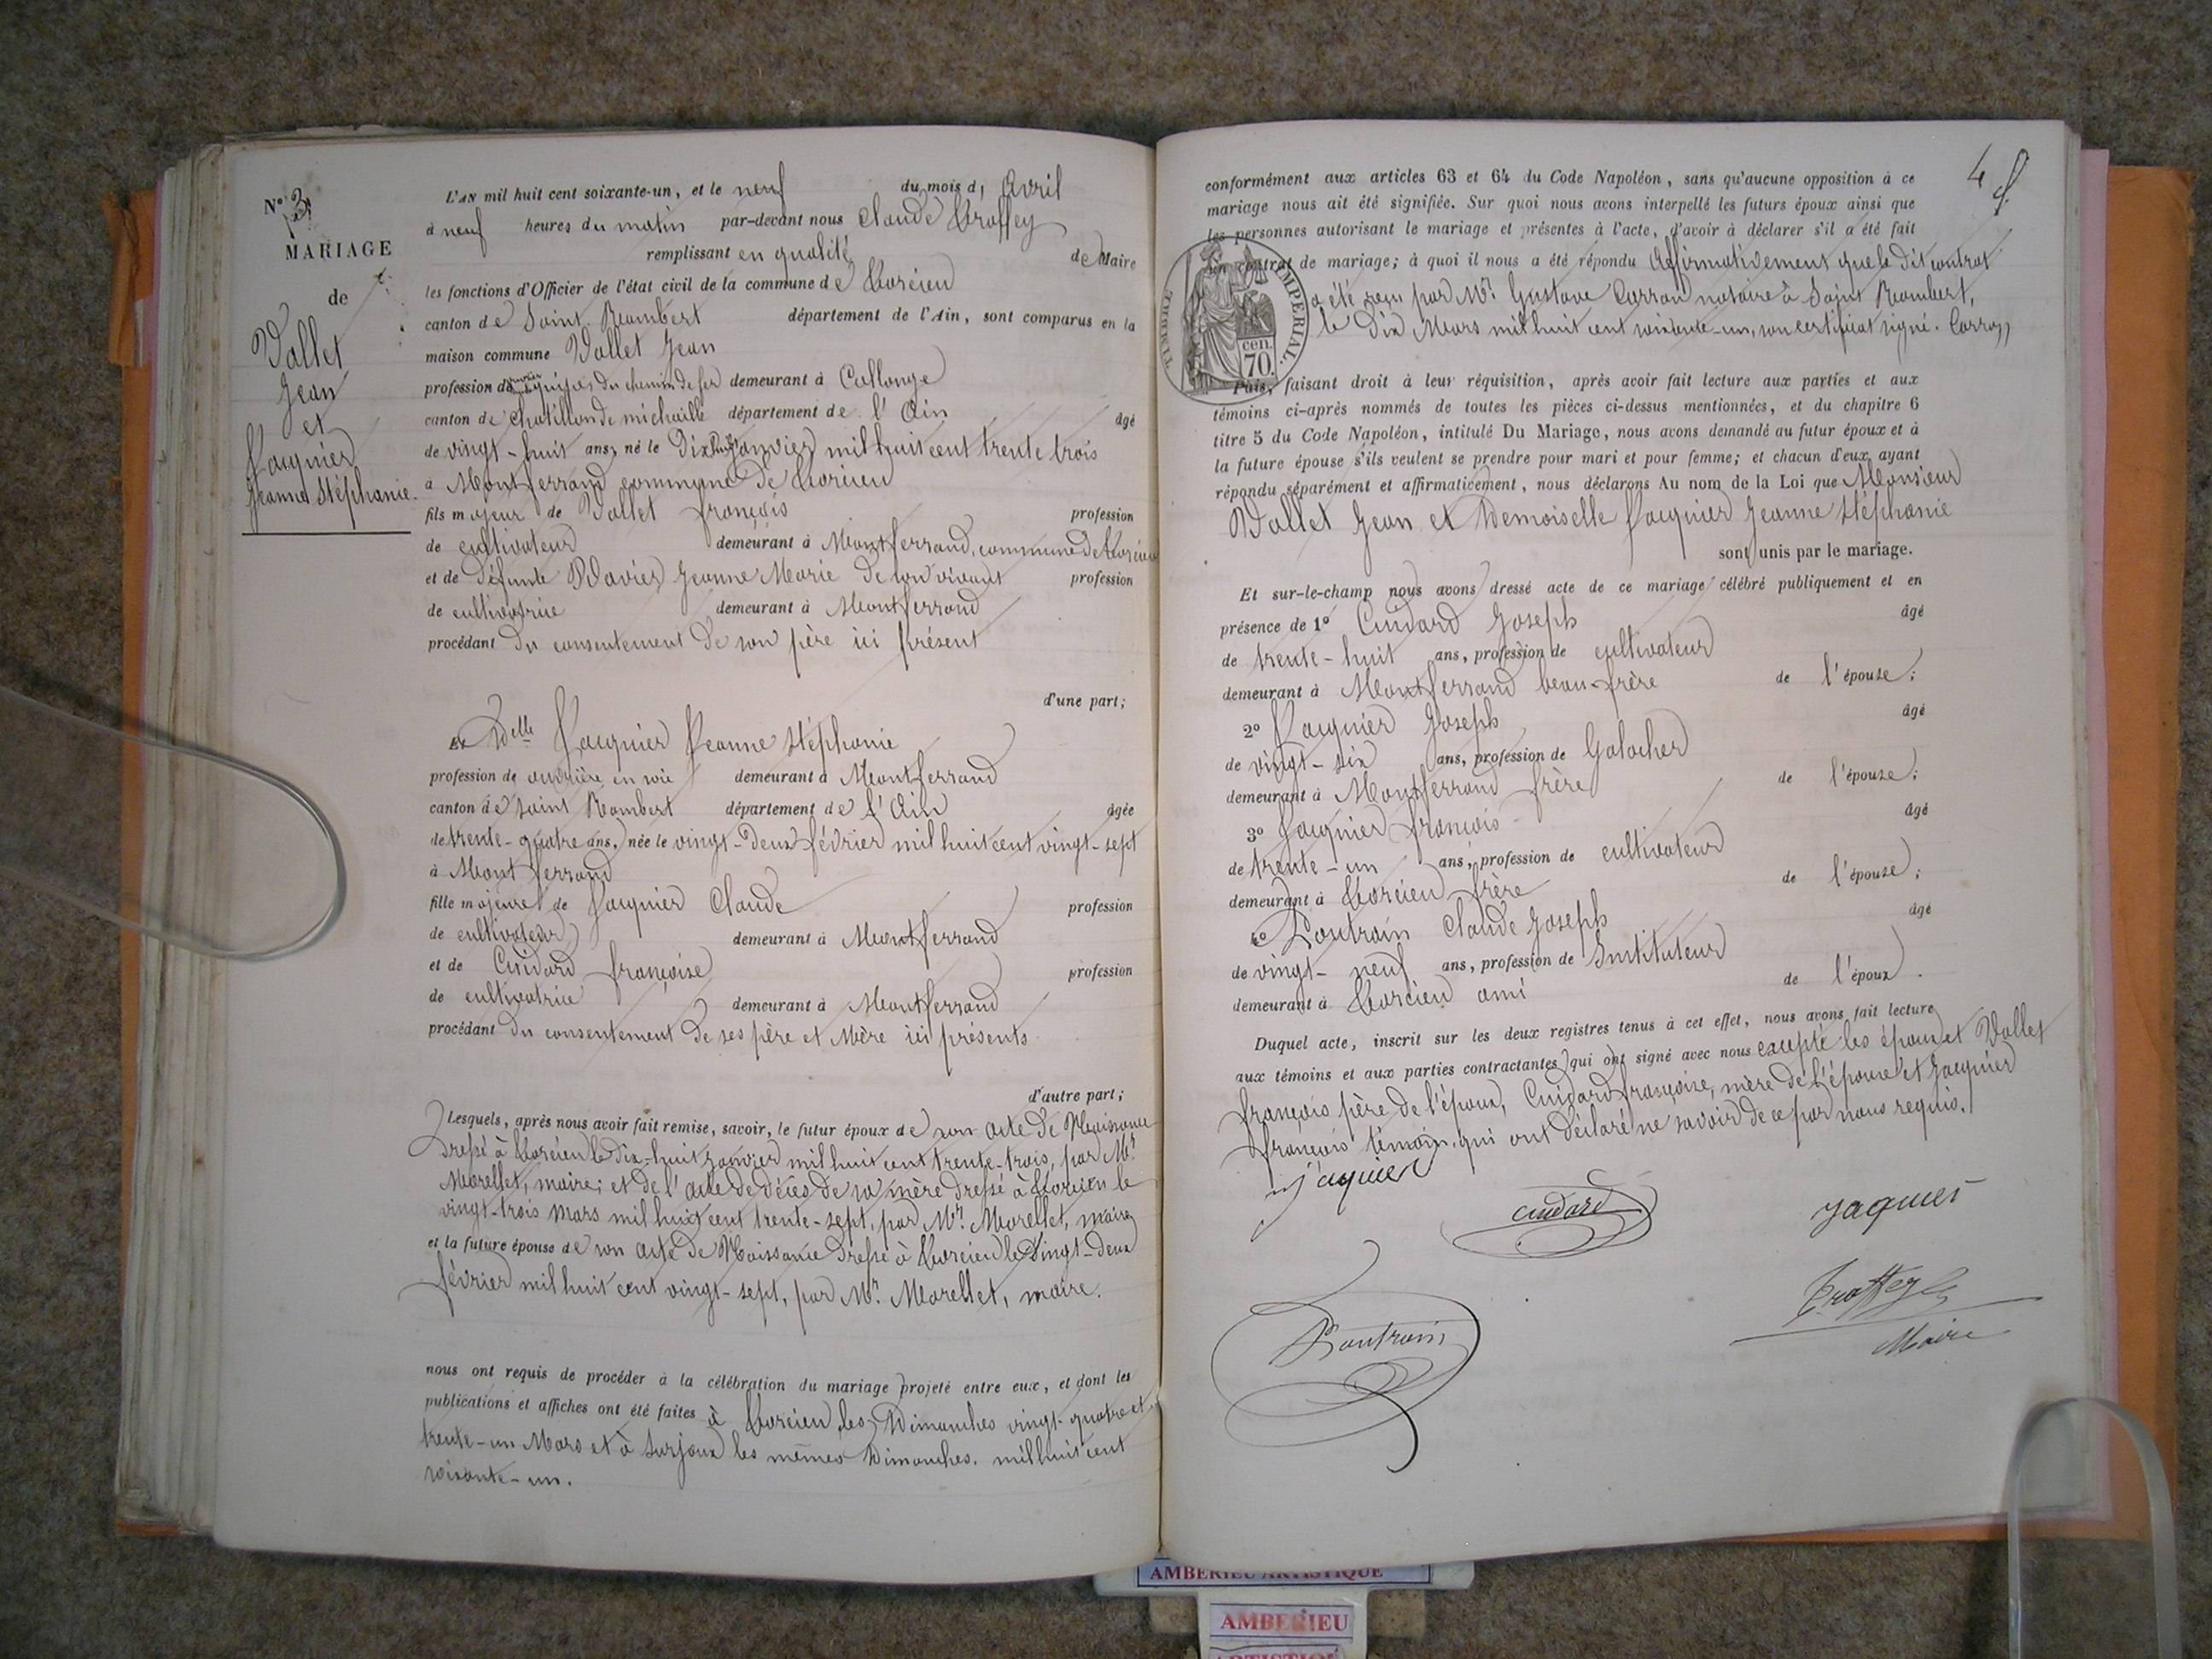 N° 3
MARIAGE
de
Vallet
Jean
et
Jacquier
Jeanne Stéphanie.
L'AN mil huit cent soixante-un, et le neuf du mois d' Avril
à neuf heures du matin par-devant nous Claude Troffey
remplissant en qualité de Maire
les fonctions d'Officier de l'état civil de la commune de Torcieu
canton de Saint Rambert département de l'Ain, sont comparus en la
maison commune Vallet Jean
profession de ouvrier équipes du chemin de fer demeurant à Collonge
canton de Chatillon de michaille département de l'Ain âgé
de vingt-huit ans, né le Dix huit Janvier mil huit cent trente trois
à Montferrand commune de Torcieu
fils majeur de Vallet françois profession
de cultivateur demeurant à Montferrand, commune de Torcieu
et de défunte Ravier Jeanne Marie de son vivant profession
de cultivatrice demeurant à Montferrand
procédant du consentement de son père ici présent
d'une part;
Et Delle Jacquier Jeanne Stéphanie
profession de ouvrière en soie demeurant à Montferrand
canton de Saint Rambert département de l'Ain âgée
de trente-quatre ans, née le vingt-Deux février mil huit cent vingt-sept
à Montferrand
fille majeure de Jacquier Claude profession
de cultivateur demeurant à Montferrand
et de Cuidard françoise profession
de cultivatrice demeurant à Montferrand
procédant du consentement de ses père et Mère ici présents
d'autre part;
Lesquels, après nous avoir fait remise, savoir, le futur époux de son acte de Naissance
dressé à Torcieu le dix-huit Janvier mil huit cent trente-trois, par Mr.
Morellet, maire; et de l'acte de décès de sa mère dressé à Torcieu le
vingt-trois mars mil huit cent trente-sept, par Mr. Morellet, maire
et la future épouse de son acte de Naissance dressé à Torcieu le Vingt-Deux
février mil huit cent vingt-sept, par Mr. Morellet, maire.
nous ont requis de procéder à la célébration du mariage projeté entre eux, et dont les
publications et affiches ont été faites à Torcieu les Dimanches vingt-quatre et
trente-un Mars et à Surjoux les mêmes Dimanches. mil huit cent
soixante-un.
4
conformément aux articles 63 et 64 du Code Napoléon, sans qu'aucune opposition à ce
mariage nous ait été signifiée. Sur quoi nous avons interpellé les futurs époux ainsi que
les personnes autorisant le mariage et présentes à l'acte, d'avoir à déclarer s'il a été fait
un contrat de mariage; à quoi il nous a été répondu Affirmativement que le dit contrat
a été reçu par Mr. Gustave Carron notaire à Saint Rambert,
le Dix Mars mil huit cent soixante-un, son certificat signé. Carron
TIMBRE IMPERIAL.
cen.
70.
Puis, faisant droit à leur réquisition, après avoir fait lecture aux parties et aux
témoins ci-après nommés de toutes les pièces ci-dessus mentionnées, et du chapitre 6
titre 5 du Code Napoléon, intitulé Du Mariage, nous avons demandé au futur époux et à
la future épouse s'ils veulent se prendre pour mari et pour femme; et chacun d'eux ayant
répondu séparément et affirmativement, nous déclarons Au nom de la Loi que Monsieur
Vallet Jean et Demoiselle Jacquier Jeanne Stéphanie
sont unis par le mariage.
Et sur-le-champ nous avons dressé acte de ce mariage célébré publiquement et en
présence de 1° Cuidard Joseph âgé
de trente-huit ans, profession de cultivateur
demeurant à Montferrand beau-frère de l'épouse;
2° Jacquier Joseph âgé
de vingt-six ans, profession de Galocher
demeurant à Montferrand frère de l'épouse;
3° Jacquier françois âgé
de trente-un ans, profession de cultivateur
demeurant à Torcieu frère de l'épouse;
4° Poutrain Claude Joseph âgé
de vingt-neuf ans, profession de Instituteur
demeurant à Torcieu ami de l'époux.
Duquel acte, inscrit sur les deux registres tenus à cet effet, nous avons fait lecture
aux témoins et aux parties contractantes qui ont signé avec nous excepté les époux et Vallet
françois père de l'époux, Cuidard françoise, mère de l'épouse et Jacquier
françois témoin, qui ont déclaré ne savoir de ce par nous requis.
jaquier
cuidard
jaquier
Poutrain
Troffey
Maire
AMBERIEU ARTISTIQUE
AMBERIEU
ARTISTIQUE